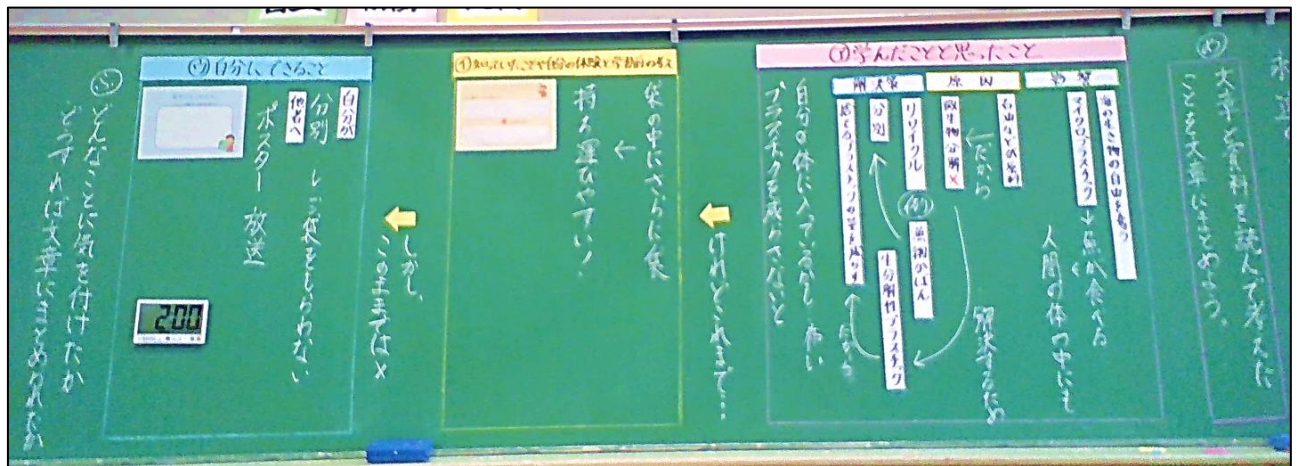 め
文章と資料を読んで考えた
ことを文章にまとめよう。
㋐学んだことと思ったこと
海の生き物の自由を奪う
マイクロプラスチック
↓魚が食べる
人間の体の中にも
原因
石油などが原料
だから
微生物分解×
解決するため
解決策
リサイクル
分別
例
風物かばん
生分解性プラスチック
自分の体に入っているかも 怖い
プラスチックを減らさないと
けれどこれまで…
㋑知っていたことや自分の体験と学習前の考え
袋の中にさらに袋
↓
持ち運びやすい！
しかし、
このままでは×
㋒自分にできること
自分が
分別 レジ袋をもらわない
他者へ
ポスター 放送
200
ふ
どんなことに気を付けたか
どうすれば文章にまとめられたか